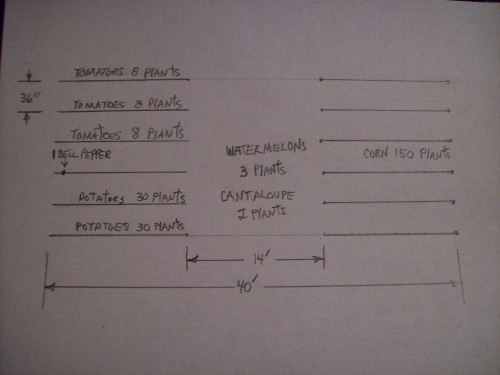 TOMATOES 8 PLANTS
36"
TOMATOES 8 PLANTS
TOMATOES 8 PLANTS
1 BELL PEPPER
WATERMELONS
3 PLANTS
CORN 150 PLANTS
POTATOES 30 PLANTS
CANTALOUPE
PLANTS
POTATOES 30 PLANTS
14'
40'